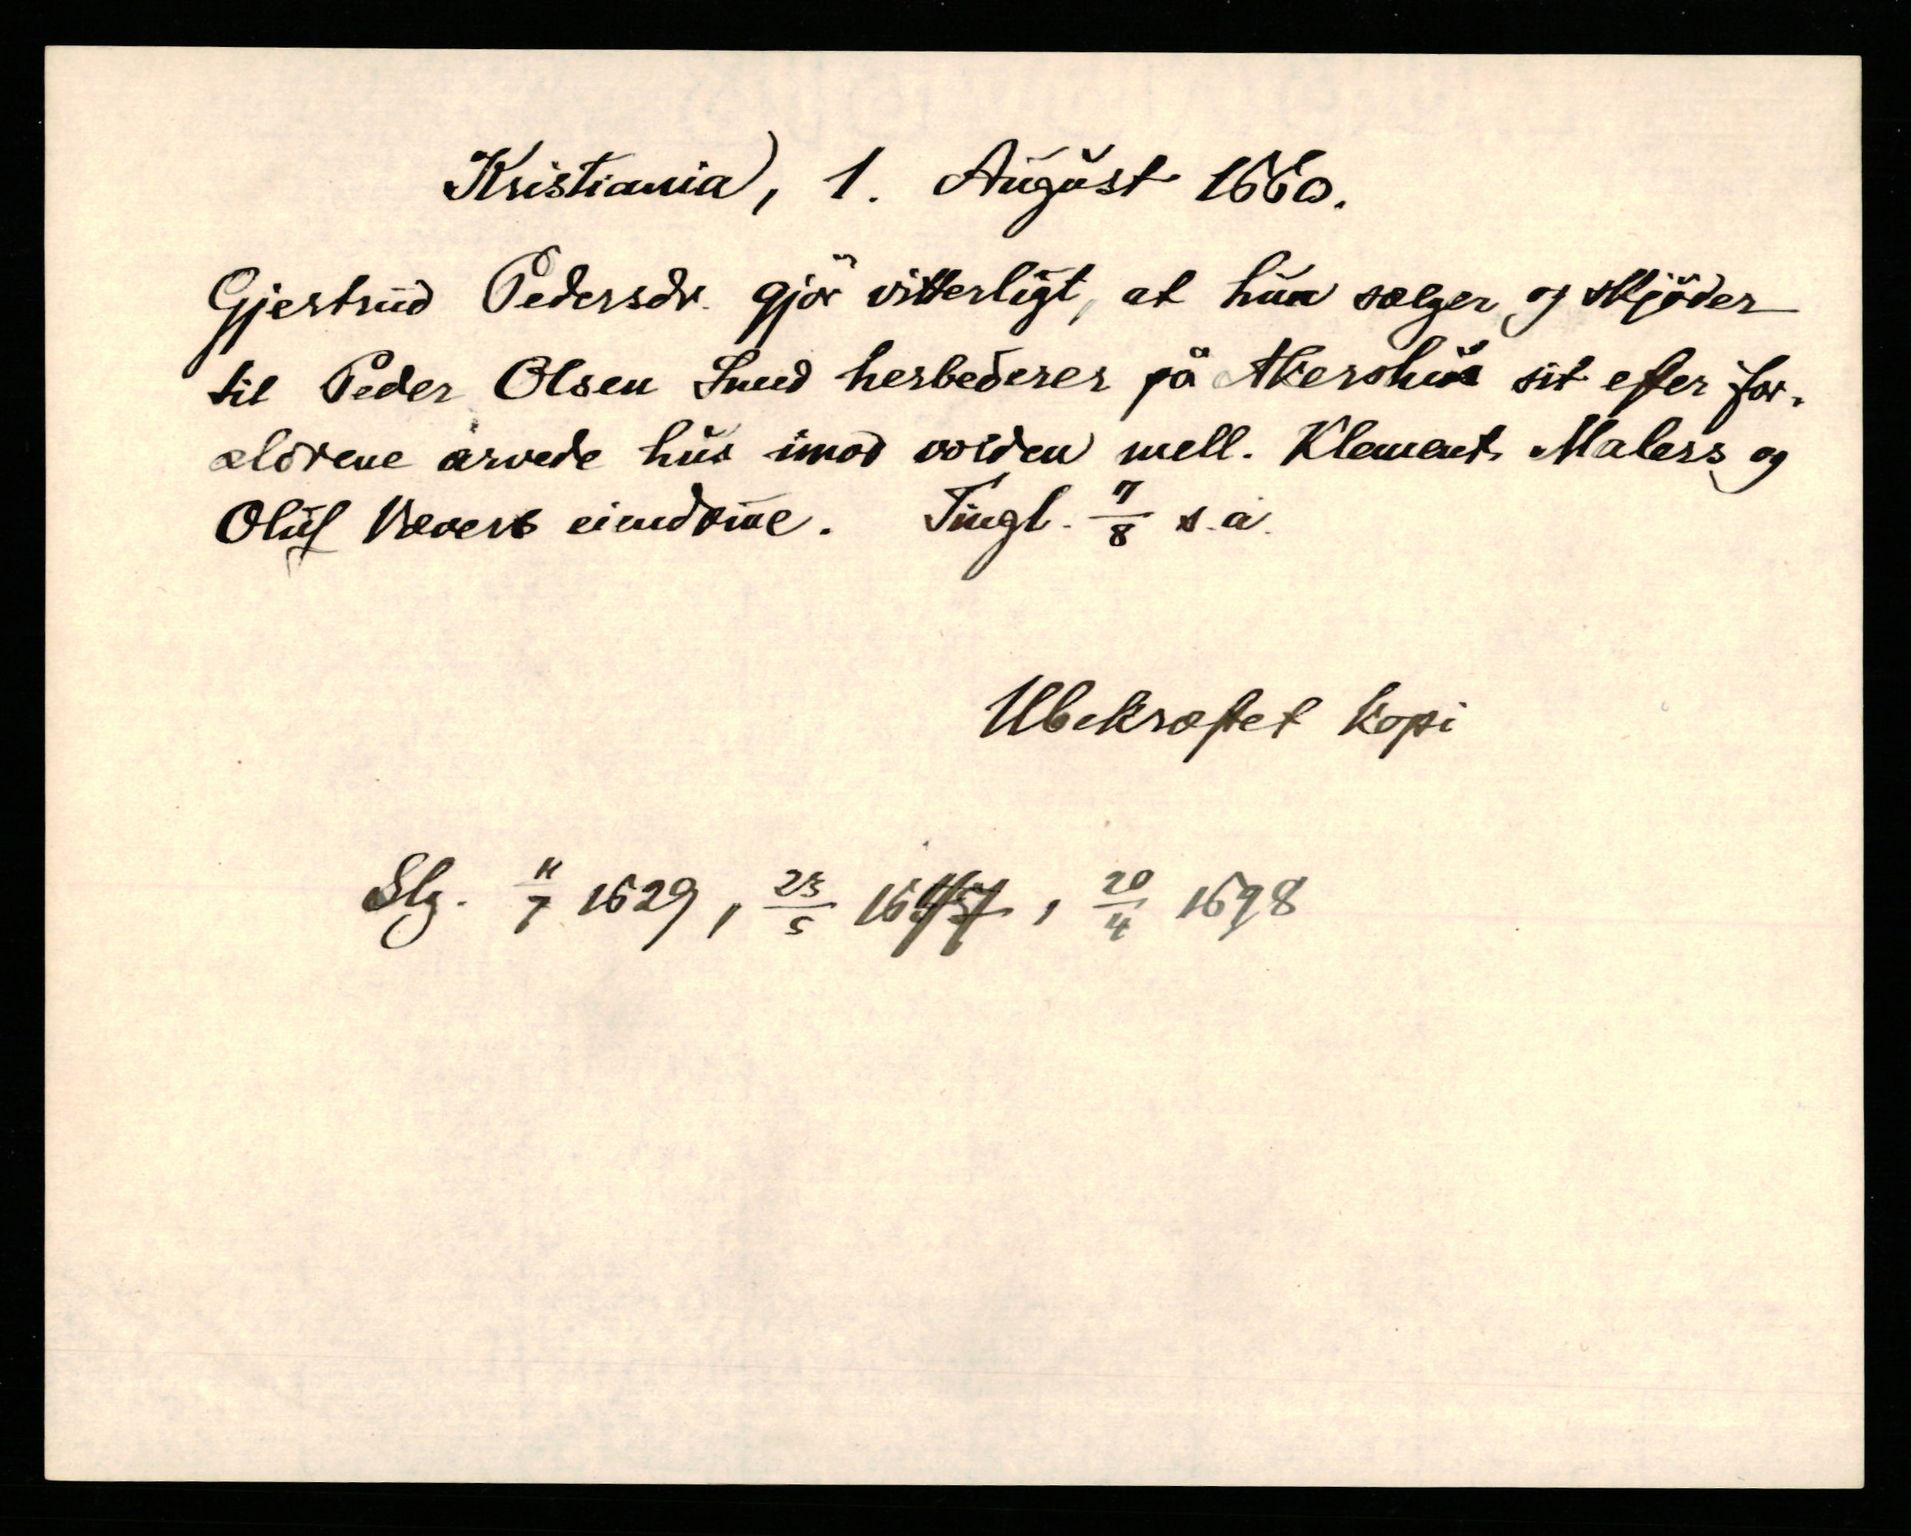 Kristiania, 1. August 1660.
Gjertrud Pedersdr. gjör vitterligt, at hun sælger og skjöder
til Peder Olsen Smed herbederer på Akershus sit efter for-
ældrene arvede hus imod volden mell. Klement Malers og
Oluf Vævers eiendome. Tingl. 7/8 s.a.
Ubekræftet kopi
Slg. 11/7 1629, 23/5 , 20/4 1698